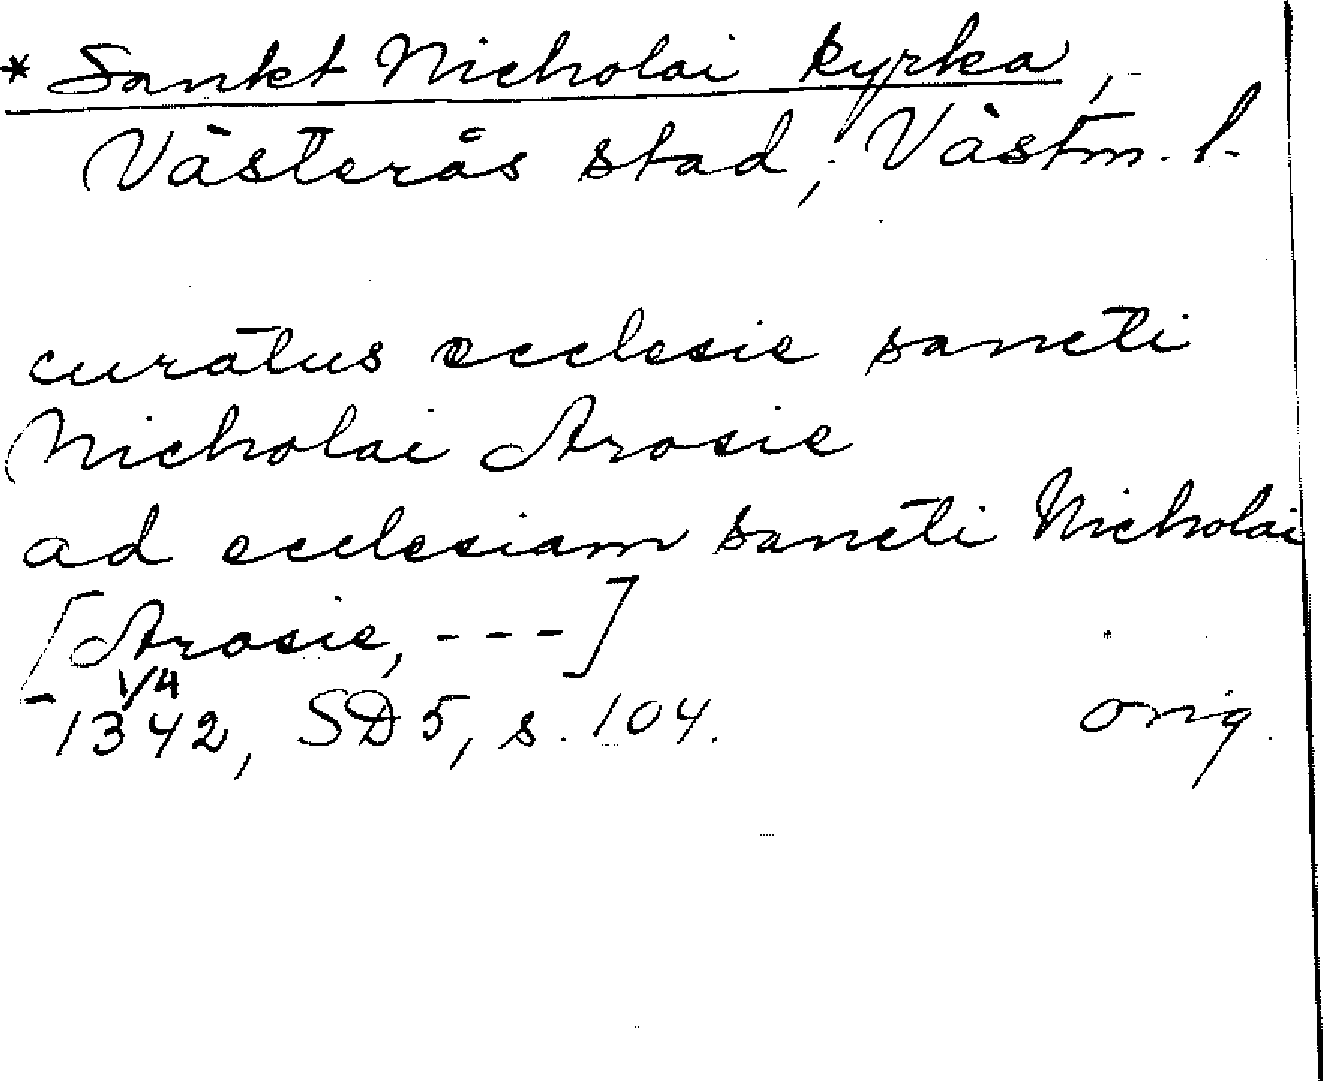 * Sankt Nicholai kyrka,
Västerås stad, Västm. l.
curatus ecclesie sancti
Nicholai Arosie
ad ecclesiam sancti Nicholai
[Arosie, ---]
1342 1/4, SD 5, s. 104. orig.